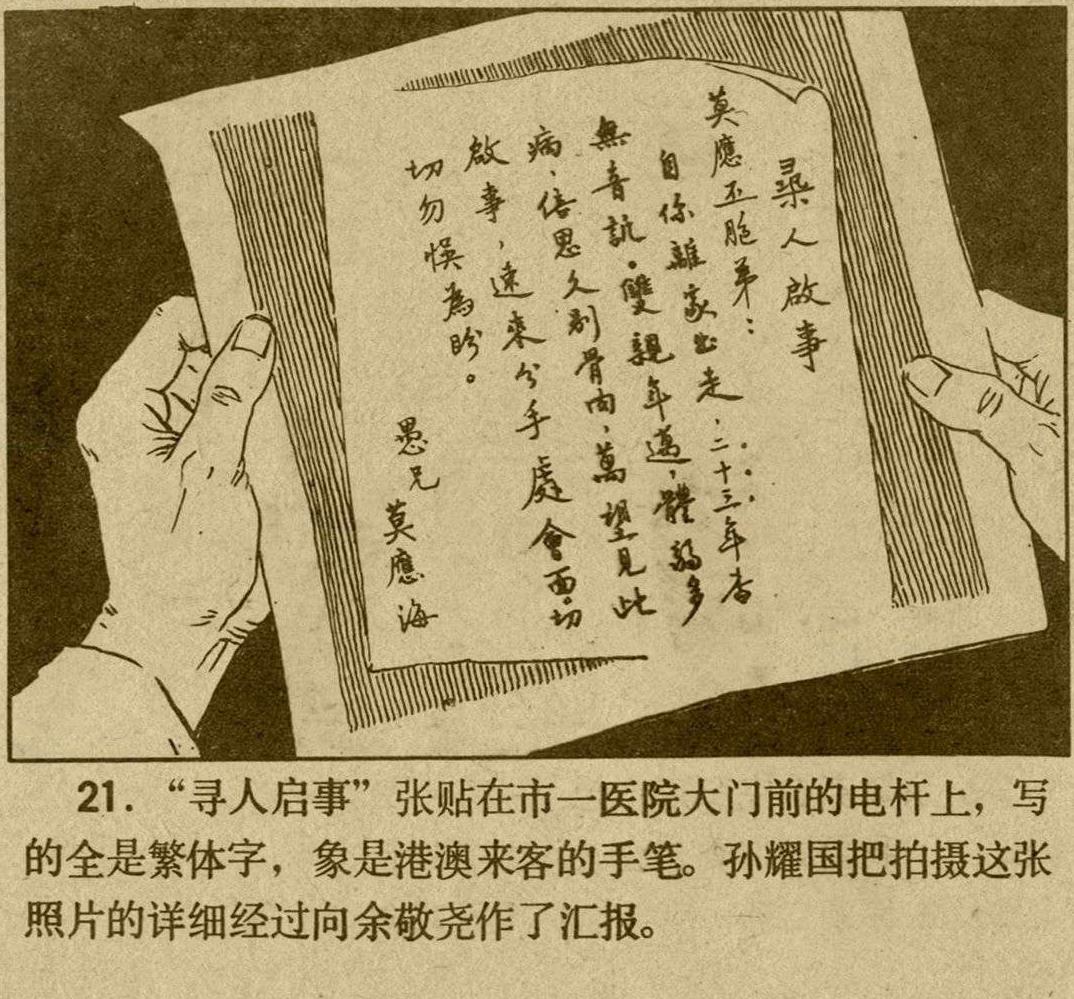 尋人啟事
莫應丕胞弟：
自你離家出走，二十三年杳
無音訊。雙親年邁，體弱多
病，倍思久别骨肉，萬望見此
啟事，速來分手處會面。切
切勿悞為盼。
愚兄 莫應海
21. “寻人启事”张贴在市一医院大门前的电杆上，写
的全是繁体字，象是港澳来客的手笔。孙耀国把拍摄这张
照片的详细经过向余敬尧作了汇报。